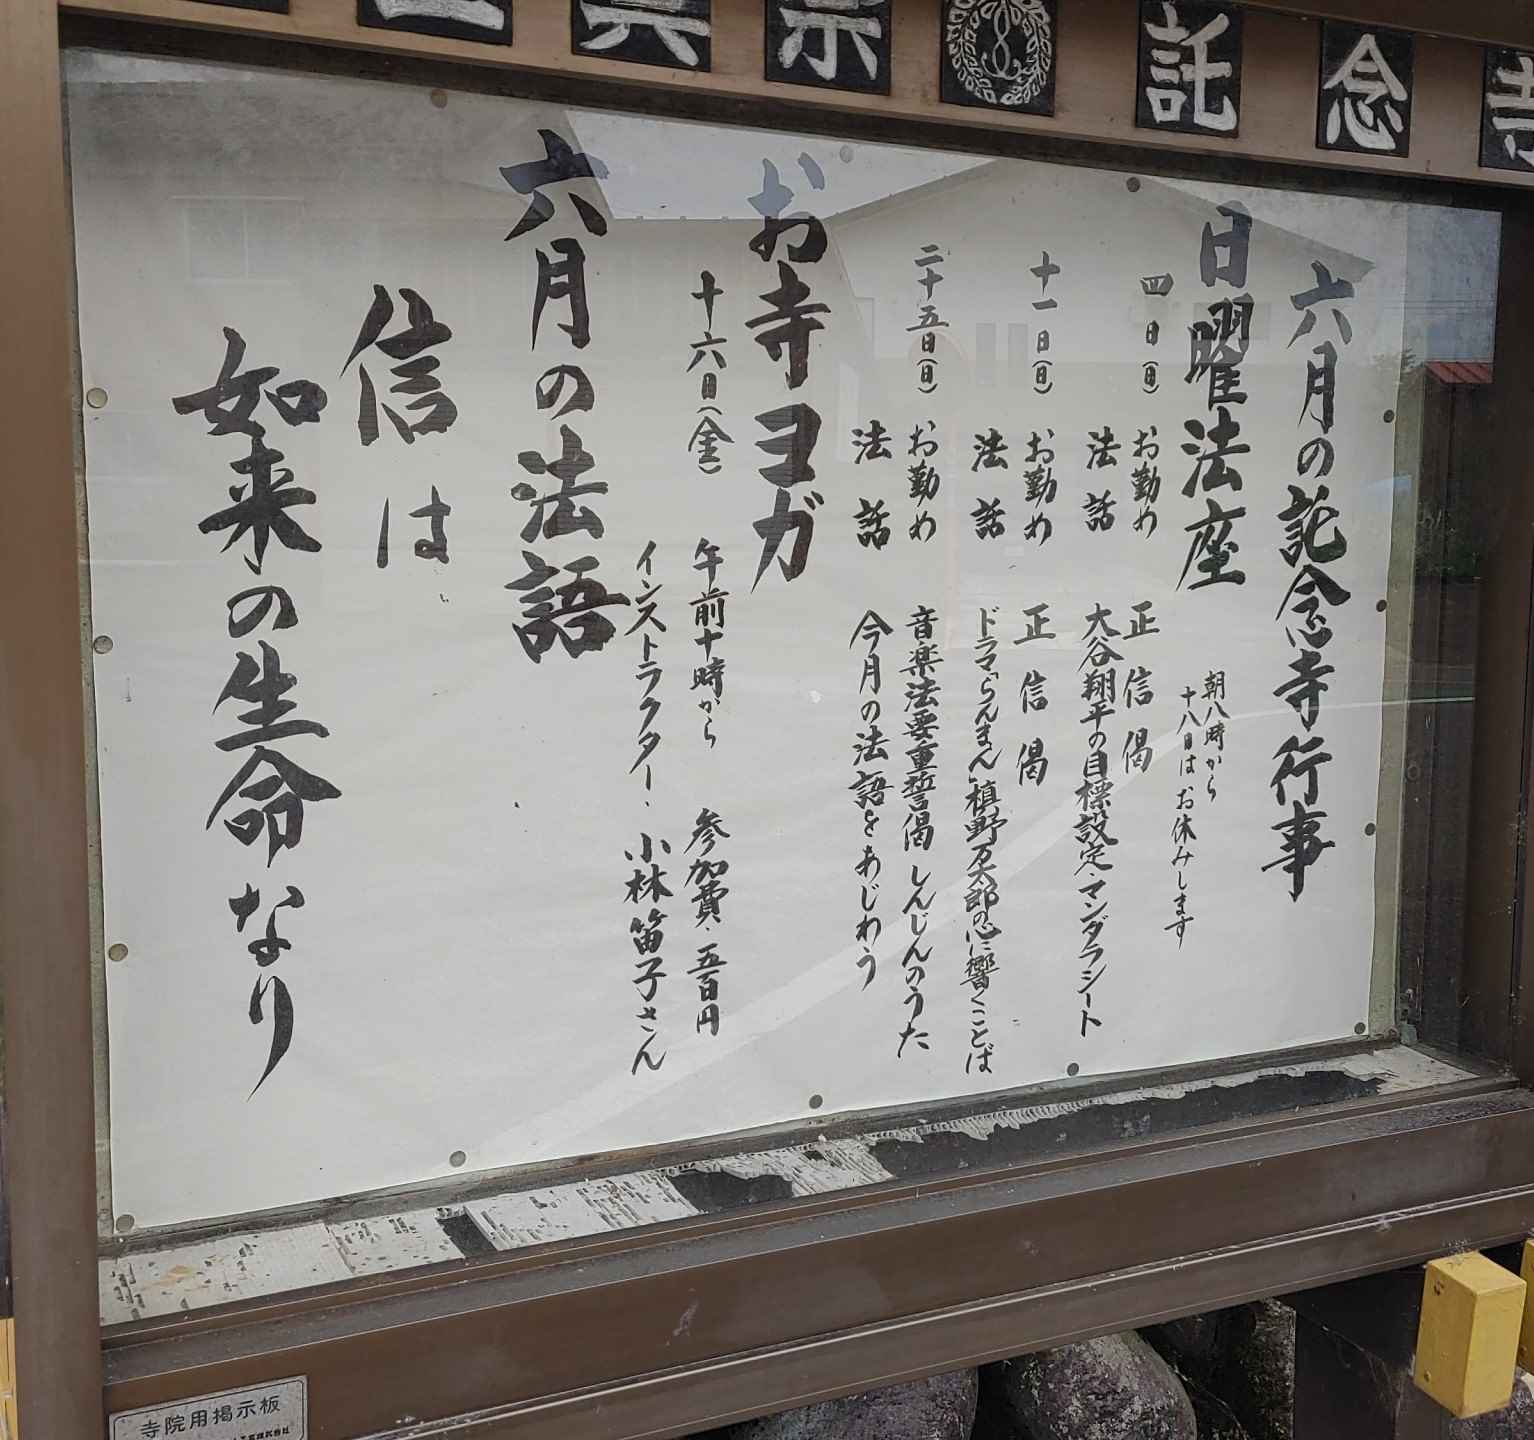 真宗 託念寺
六月の託念寺行事
日曜法座
朝八時から
十八日はお休みします
四日(日) お勤め 正信偈
法話 大谷翔平の目標設定・マンダラシート
十一日(日) お勤め 正信偈
法話 ドラマ「らんまん」槙野万太郎の心に響くことば
二十五日(日) お勤め 音楽法要重誓偈 しんじんのうた
法話 今月の法語をあじわう
お寺ヨガ
十六日(金) 午前十時から 参加費・五百円
インストラクター・小林笛子さん
六月の法語
信は
如来の生命なり
寺院用掲示板